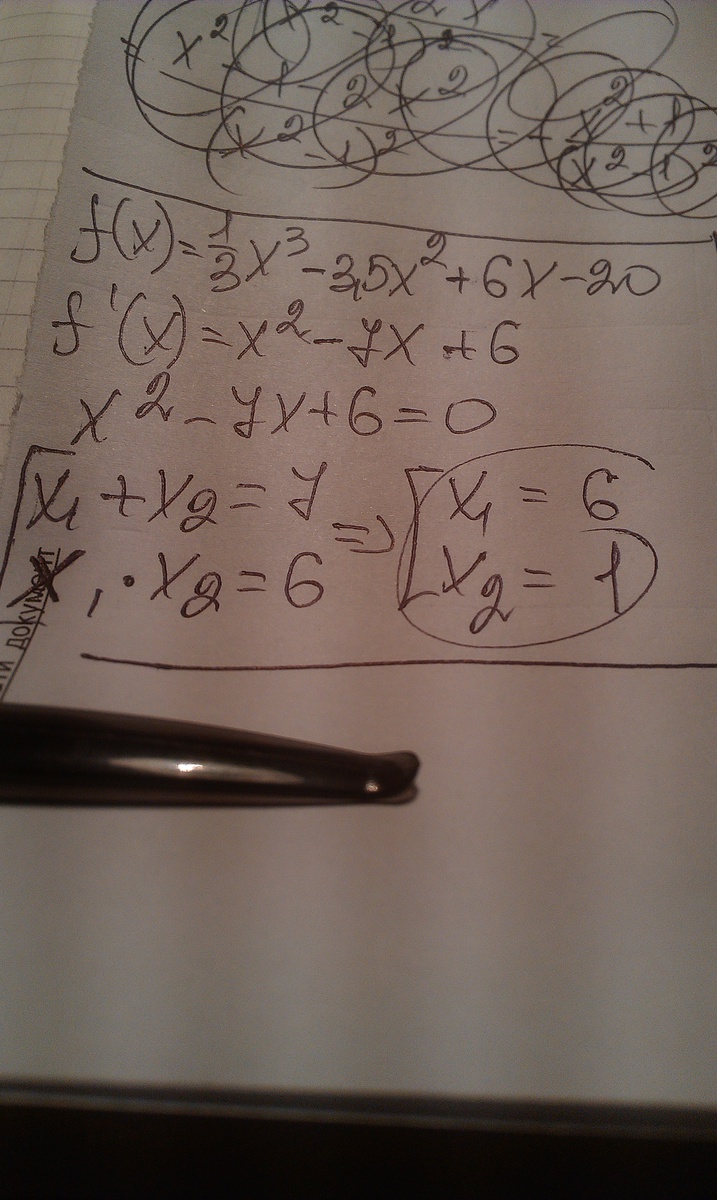 f(x)=1/3x³-3,5x²+6x-20
f'(x)=x²-7x+6
x²-7x+6=0
x₁+x₂=7 => [x₁=6
x₁·x₂=6 x₂=1
документ